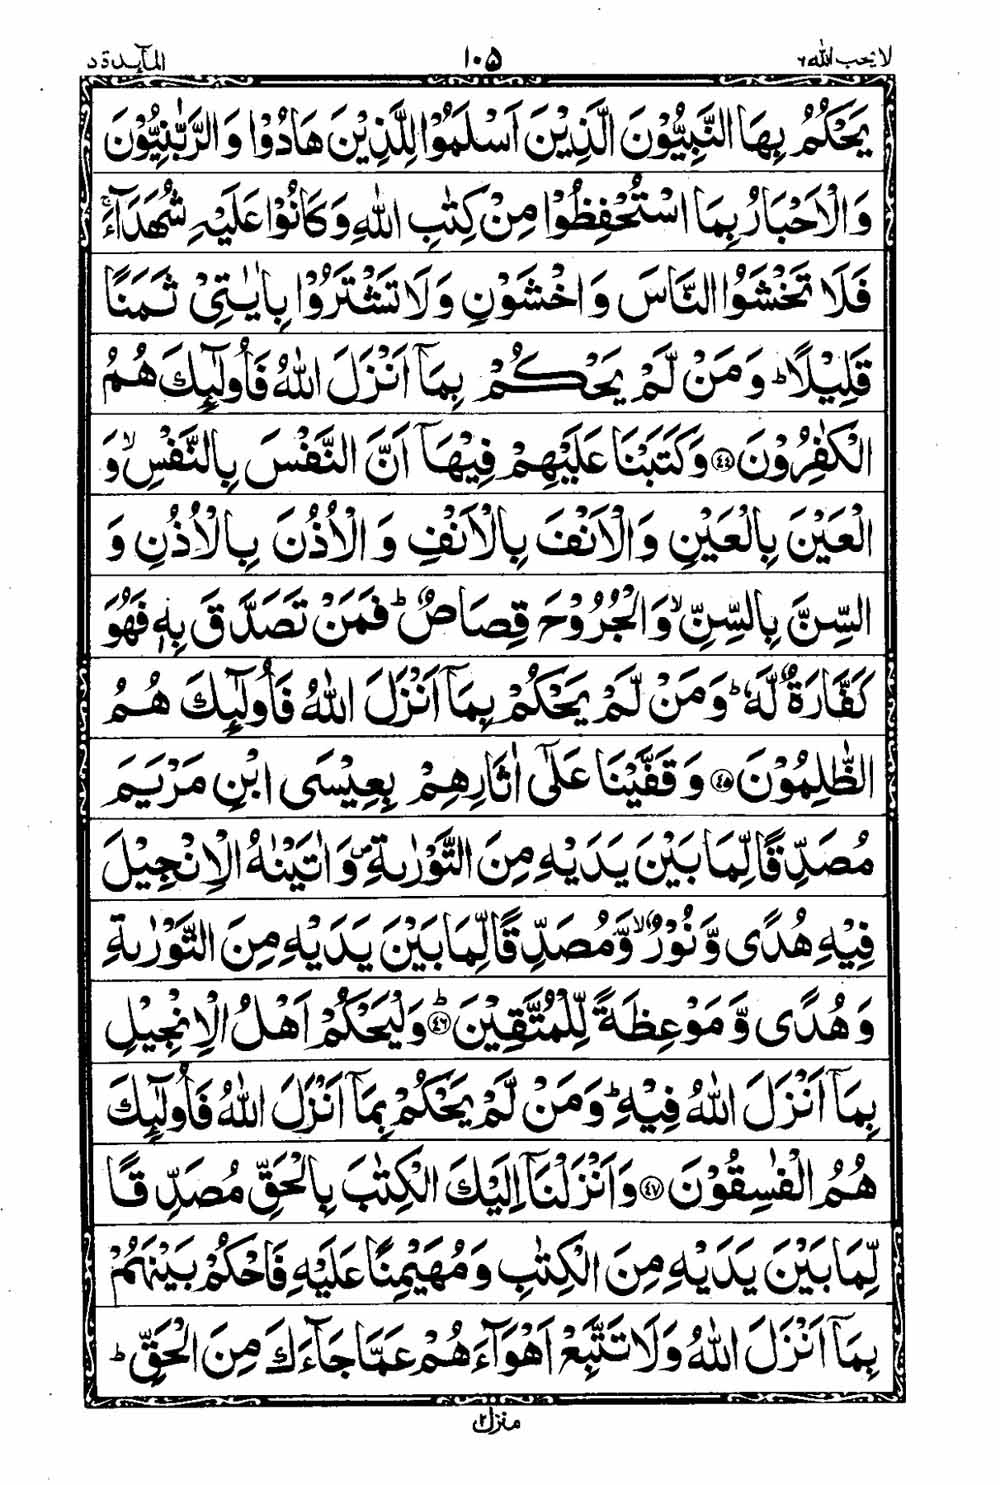 لا یحب اللہ ٦
١٠٥
المآىِٕدة ٥
یَحْكُمُ بِهَا النَّبِیُّوْنَ الَّذِیْنَ اَسْلَمُوْا لِلَّذِیْنَ هَادُوْا وَ الرَّبّٰنِیُّوْنَ
وَ الْاَحْبَارُ بِمَا اسْتُحْفِظُوْا مِنْ كِتٰبِ اللّٰهِ وَ كَانُوْا عَلَیْهِ شُهَدَآءَۚ
فَلَا تَخْشَوُا النَّاسَ وَ اخْشَوْنِ وَ لَا تَشْتَرُوْا بِاٰیٰتِیْ ثَمَنًا
قَلِیْلًاؕ وَ مَنْ لَّمْ یَحْكُمْ بِمَاۤ اَنْزَلَ اللّٰهُ فَاُولٰٓىِٕكَ هُمُ
الْكٰفِرُوْنَ ﴿٤٤﴾ وَ كَتَبْنَا عَلَیْهِمْ فِیْهَاۤ اَنَّ النَّفْسَ بِالنَّفْسِۙ وَ
الْعَیْنَ بِالْعَیْنِ وَ الْاَنْفَ بِالْاَنْفِ وَ الْاُذُنَ بِالْاُذُنِ وَ
السِّنَّ بِالسِّنِّۙ وَ الْجُرُوْحَ قِصَاصٌؕ فَمَنْ تَصَدَّقَ بِهٖ فَهُوَ
كَفَّارَةٌ لَّهٗؕ وَ مَنْ لَّمْ یَحْكُمْ بِمَاۤ اَنْزَلَ اللّٰهُ فَاُولٰٓىِٕكَ هُمُ
الظّٰلِمُوْنَ ﴿٤٥﴾ وَ قَفَّیْنَا عَلٰۤى اٰثَارِهِمْ بِعِیْسَى ابْنِ مَرْیَمَ
مُصَدِّقًا لِّمَا بَیْنَ یَدَیْهِ مِنَ التَّوْرٰىةِ۪ وَ اٰتَیْنٰهُ الْاِنْجِیْلَ
فِیْهِ هُدًى وَّ نُوْرٌۙ وَّ مُصَدِّقًا لِّمَا بَیْنَ یَدَیْهِ مِنَ التَّوْرٰىةِ
وَ هُدًى وَّ مَوْعِظَةً لِّلْمُتَّقِیْنَؕ ﴿٤٦﴾ وَ لْیَحْكُمْ اَهْلُ الْاِنْجِیْلِ
بِمَاۤ اَنْزَلَ اللّٰهُ فِیْهِؕ وَ مَنْ لَّمْ یَحْكُمْ بِمَاۤ اَنْزَلَ اللّٰهُ فَاُولٰٓىِٕكَ
هُمُ الْفٰسِقُوْنَ ﴿٤٧﴾ وَ اَنْزَلْنَاۤ اِلَیْكَ الْكِتٰبَ بِالْحَقِّ مُصَدِّقًا
لِّمَا بَیْنَ یَدَیْهِ مِنَ الْكِتٰبِ وَ مُهَیْمِنًا عَلَیْهِ فَاحْكُمْ بَیْنَهُمْ
بِمَاۤ اَنْزَلَ اللّٰهُ وَ لَا تَتَّبِعْ اَهْوَآءَهُمْ عَمَّا جَآءَكَ مِنَ الْحَقِّؕ
منزل ٢